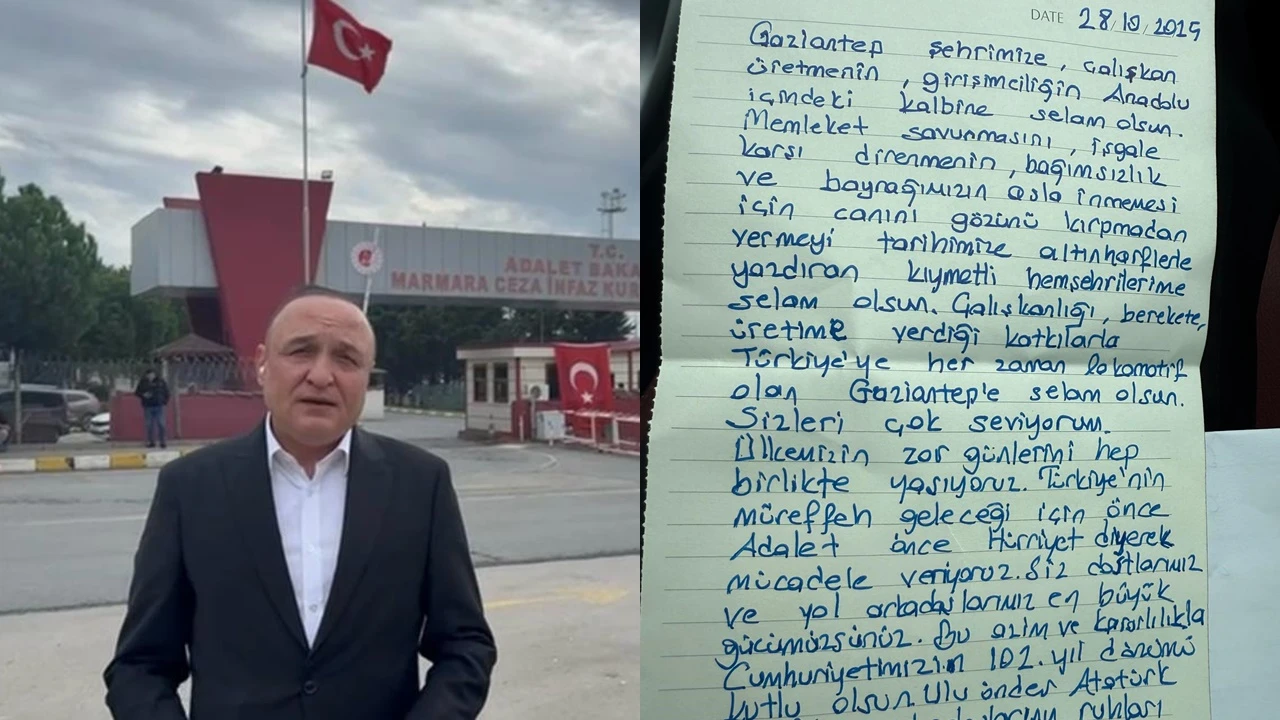 T.C.
ADALET BAKA
MARMARA CEZA İNFAZ KUR
DATE 28/10/2025
Gaziantep şehrimize, çalışkan
üretmenin, girişimciliğin Anadolu
içindeki kalbine selam olsun.
Memleket savunmasını, işgale
karşı direnmenin, bağımsızlık
ve bayrağımızın asla inmemesi
için canını gözünü kırpmadan
vermeyi tarihimize altınharflerle
yazdıran kıymetli hemşehrilerime
selam olsun. Çalışkanlığı, berekete,
üretime verdiği katkılarla
Türkiye'ye her zaman lokomotif
olan Gaziantep'e selam olsun.
Sizleri çok seviyorum.
Ülkemizin zor günlerini hep
birlikte yaşıyoruz. Türkiye'nin
müreffeh geleceği için önce
Adalet önce Hürriyet diyerek
mücadele veriyoruz. Siz dostlarımız
ve yol arkadaşlarımız en büyük
gücümüzsünüz. Bu azim ve kararlılıkla
Cumhuriyetimizin 102. yıl dönümü
kutlu olsun Ulu önder Atatürk
ruhları